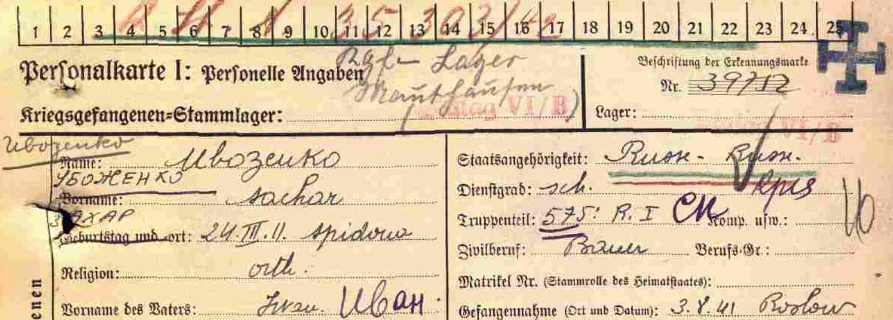 1 2 3 4 5 6 7 8 9 10 11 12 13 14 15 16 17 18 19 20 21 22 23 24 25
Personalkarte I: Personelle Angaben
Lager
Mauthausen
Beschriftung der Erkennungsmarke
Nr. 39712
Kriegsgefangenen-Stammlager: Stalag VI/B
Lager: Stalag VI/B
Name:
УБОЖЕНКО
Vorname: Sachar
ЗАХАР
Geburtstag und -ort: 24.III.11. Spidowa
Religion: orth.
Vorname des Vaters: Iwan. Иван.
Staatsangehörigkeit: Russ. Russ.
Dienstgrad: sch.
Truppenteil: 575. R. I Komp. usw.:
Zivilberuf: Bauer Berufs-Gr.:
Matrikel Nr. (Stammrolle des Heimatstaates):
Gefangennahme (Ort und Datum): 3.8.41 Roslow